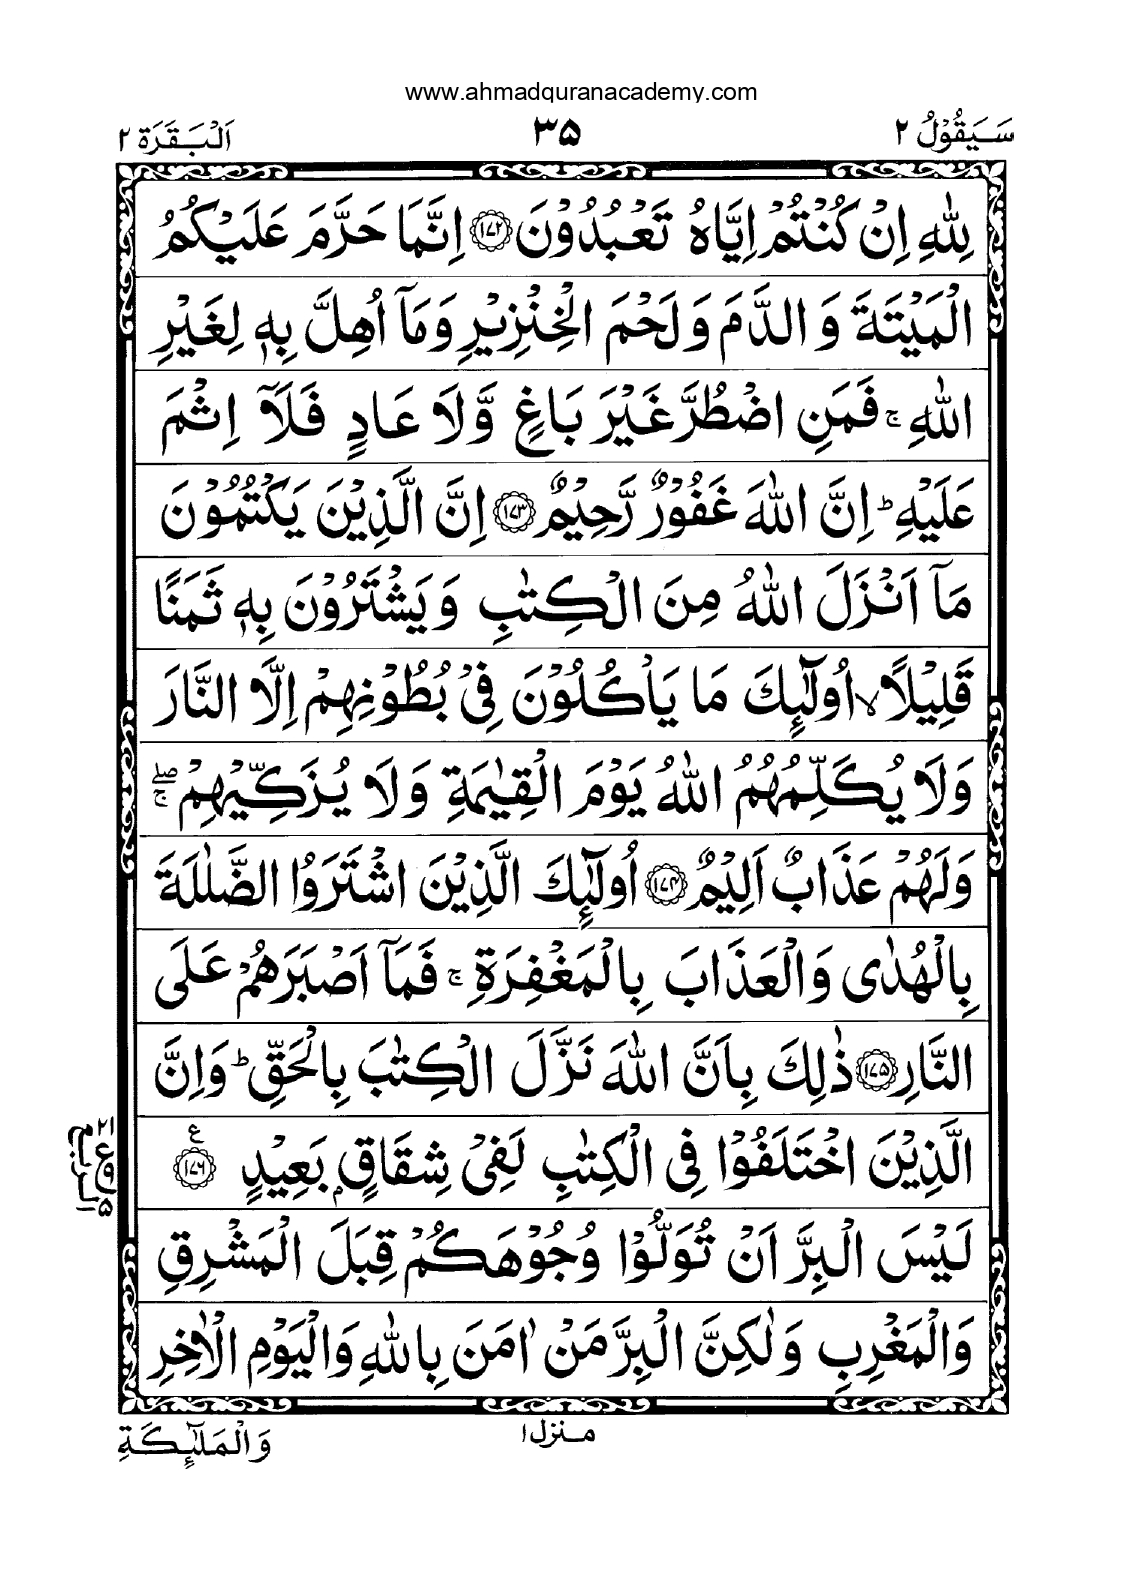 www.ahmadquranacademy.com
سَيَقُوْلُ ٢
٣٥
اَلْبَقَرَة ٢
لِلّٰهِ اِنْ كُنْتُمْ اِيَّاهُ تَعْبُدُوْنَ ۝١٧٢ اِنَّمَا حَرَّمَ عَلَيْكُمُ
الْمَيْتَةَ وَ الدَّمَ وَ لَحْمَ الْخِنْزِيْرِ وَمَاۤ اُهِلَّ بِهٖ لِغَيْرِ
اللّٰهِ ۚ فَمَنِ اضْطُرَّ غَيْرَ بَاغٍ وَّلَا عَادٍ فَلَاۤ اِثْمَ
عَلَيْهِ ؕ اِنَّ اللّٰهَ غَفُوْرٌ رَّحِيْمٌ ۝١٧٣ اِنَّ الَّذِيْنَ يَكْتُمُوْنَ
مَاۤ اَنْزَلَ اللّٰهُ مِنَ الْكِتٰبِ وَيَشْتَرُوْنَ بِهٖ ثَمَنًا
قَلِيْلًا ۙ اُولٰٓئِكَ مَا يَاْكُلُوْنَ فِيْ بُطُوْنِهِمْ اِلَّا النَّارَ
وَلَا يُكَلِّمُهُمُ اللّٰهُ يَوْمَ الْقِيٰمَةِ وَلَا يُزَكِّيْهِمْ ۖۚ
وَلَهُمْ عَذَابٌ اَلِيْمٌ ۝١٧٤ اُولٰٓئِكَ الَّذِيْنَ اشْتَرَوُا الضَّلٰلَةَ
بِالْهُدٰى وَالْعَذَابَ بِالْمَغْفِرَةِ ۚ فَمَاۤ اَصْبَرَهُمْ عَلَى
النَّارِ ۝١٧٥ ذٰلِكَ بِاَنَّ اللّٰهَ نَزَّلَ الْكِتٰبَ بِالْحَقِّ ؕ وَاِنَّ
الَّذِيْنَ اخْتَلَفُوْا فِي الْكِتٰبِ لَفِيْ شِقَاقٍۭ بَعِيْدٍ ۝١٧٦ ع
لَيْسَ الْبِرَّ اَنْ تُوَلُّوْا وُجُوْهَكُمْ قِبَلَ الْمَشْرِقِ
وَالْمَغْرِبِ وَلٰكِنَّ الْبِرَّ مَنْ اٰمَنَ بِاللّٰهِ وَالْيَوْمِ الْاٰخِرِ
٢١
ع
٥
الربع
منزل ١
وَالْمَلٰٓئِكَةِ